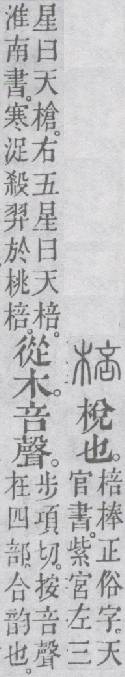 棓 梲也。
棓棒正俗字。天
官書。紫宮左三
星曰天槍。右五星曰天棓。
淮南書。寒浞殺羿於桃棓。
從木。咅聲。
步項切。按咅聲
在四部。合韵也。